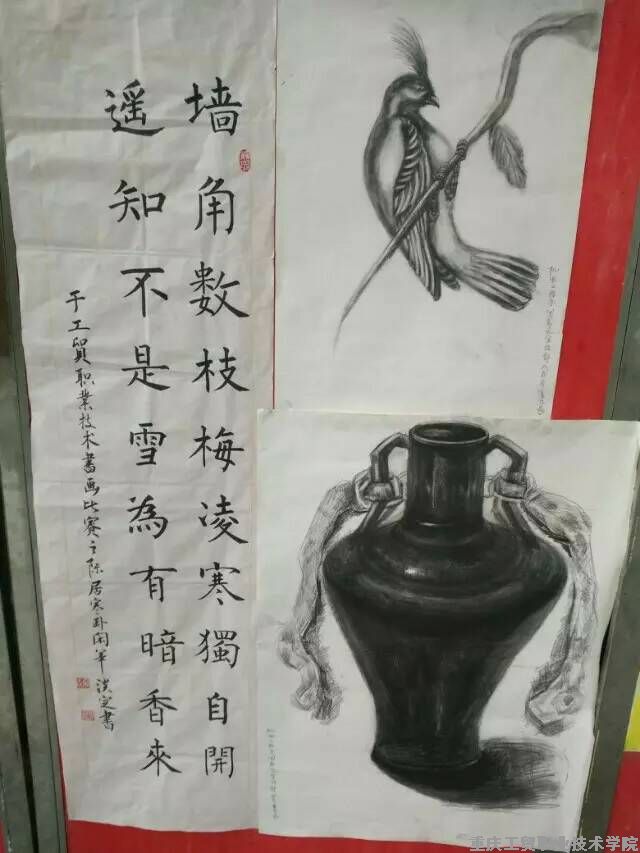 墙角数枝梅凌寒獨自開
遥知不是雪為有暗香來
于工貿职業技术書画比赛之际居寒卧闲軍
淡定書
重庆工贸职业技术学院